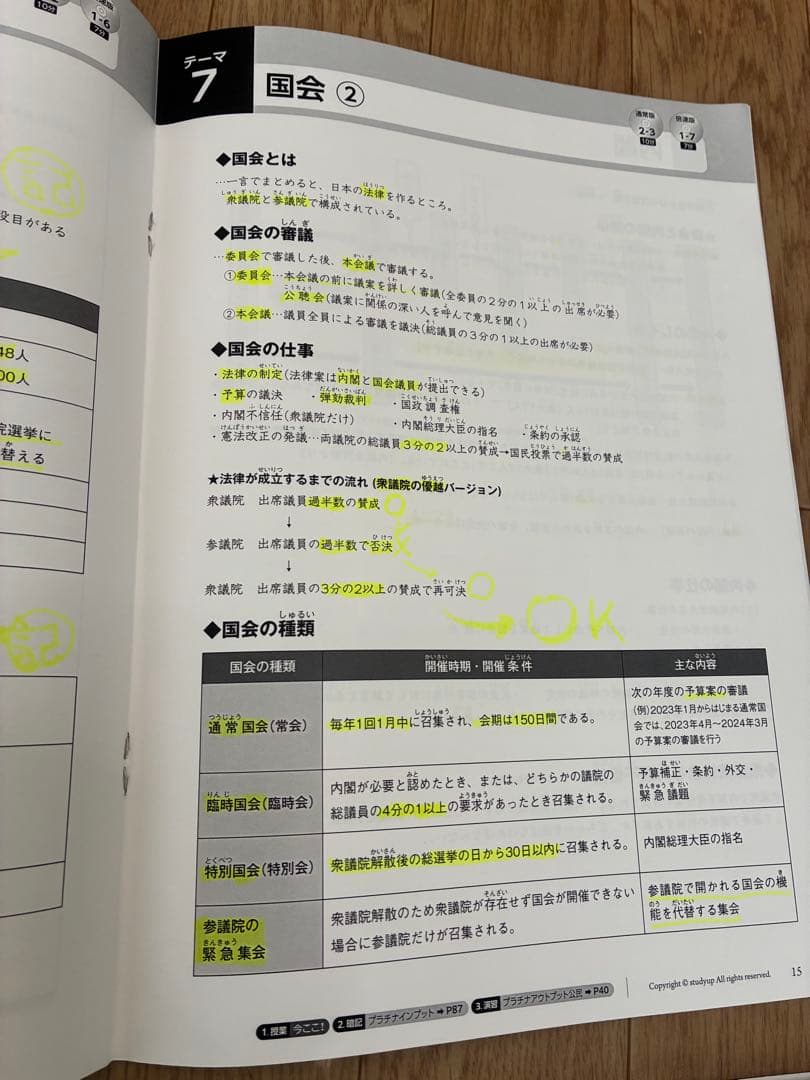 10分
1-6
7分
役目がある
48人
00人
院選挙に
替える
テーマ
7
国会②
通常版
2-3
10分
倍速版
1-7
7分
◆国会とは
…一言でまとめると、日本の法律を作るところ。
衆議院と参議院で構成されている。
◆国会の審議
…委員会で審議した後、本会議で審議する。
①委員会…本会議の前に議案を詳しく審議(全委員の2分の1以上の出席が必要)
公聴会(議案に関係の深い人を呼んで意見を聞く)
②本会議…議員全員による審議を議決(総議員の3分の1以上の出席が必要)
◆国会の仕事
・法律の制定(法律案は内閣と国会議員が提出できる)
・予算の議決 ・弾劾裁判 ・国政調査権
・内閣不信任(衆議院だけ) ・内閣総理大臣の指名 ・条約の承認
・憲法改正の発議…両議院の総議員3分の2以上の賛成→国民投票で過半数の賛成
★法律が成立するまでの流れ(衆議院の優越バージョン)
衆議院 出席議員過半数の賛成
↓
参議院 出席議員の過半数で否決
↓
衆議院 出席議員の3分の2以上の賛成で再可決
→OK
◆国会の種類
国会の種類 開催時期・開催条件 主な内容
通常国会(常会) 毎年1回1月中に召集され、会期は150日間である。
次の年度の予算案の審議
(例)2023年1月からはじまる通常国
会では、2023年4月〜2024年3月
の予算案の審議を行う
臨時国会(臨時会) 内閣が必要と認めたとき、または、どちらかの議院の
総議員の4分の1以上の要求があったとき召集される。
予算補正・条約・外交・
緊急議題
特別国会(特別会) 衆議院解散後の総選挙の日から30日以内に召集される。
内閣総理大臣の指名
参議院の
緊急集会
衆議院解散のため衆議院が存在せず国会が開催できない
場合に参議院だけが召集される。
参議院で開かれる国会の機
能を代替する集会
1.授業 今ここ! 2.暗記 プラチナインプット➡P87 3.演習 プラチナアウトプット公民➡P40
Copyright © studyup All rights reserved.
15